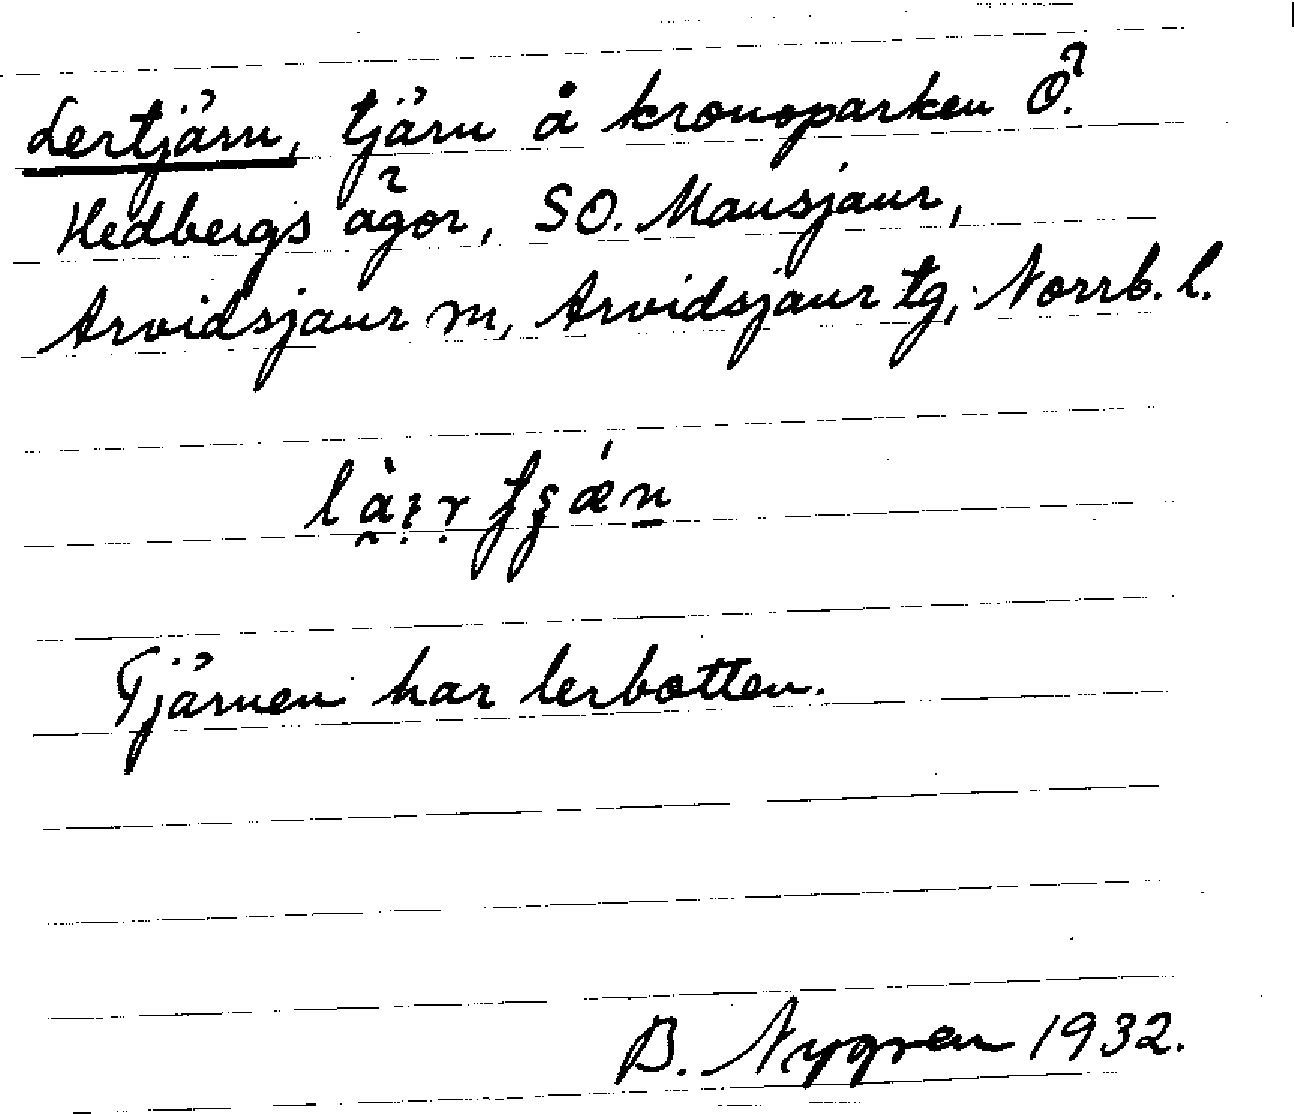 Lertjärn, tjärn å kronoparken Ö.
Hedbergs ägor, SO. Mausjaur,
Arvidsjaur sn, Arvidsjaur tg, Norrb. l.
Tjärnen har lerbotten.
B. Nygren 1932.